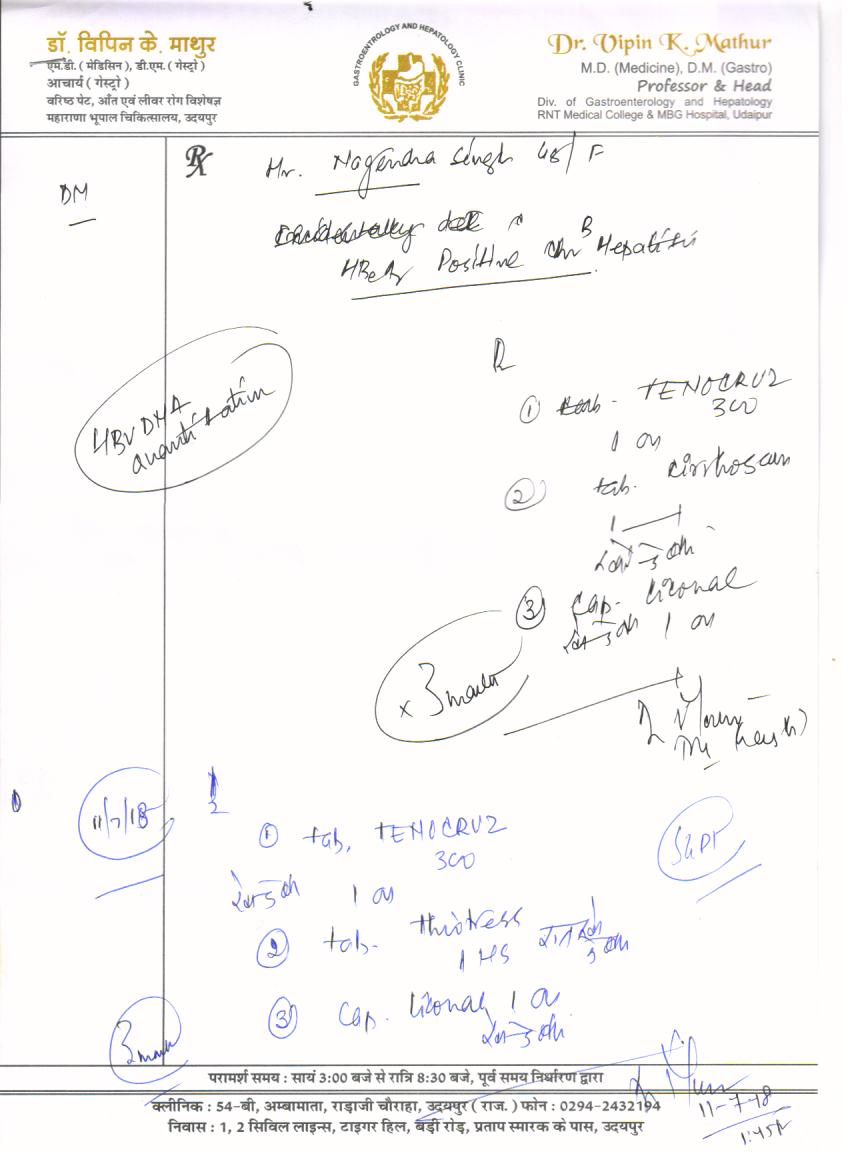 डॉ. विपिन के. माथुर
एम.डी. ( मेडिसिन ), डी.एम. ( गेस्ट्रो )
आचार्य ( गेस्ट्रो )
वरिष्ठ पेट, आँत एवं लीवर रोग विशेषज्ञ
महाराणा भूपाल चिकित्सालय, उदयपुर
GASTROENTEROLOGY AND HEPATOLOGY CLINIC
Dr. Vipin K. Mathur
M.D. (Medicine), D.M. (Gastro)
Professor & Head
Div. of Gastroenterology and Hepatology
RNT Medical College & MBG Hospital, Udaipur
Rx
DM
Mr. Nagendra Singh 48/F
HBeAg Positive Chr B Hepatitis
HBV DNA
R
① tab. TENOCRUZ
300
1 on
② tab. Cirrhoscan
1 1
③ Cap. Liconal
1 on
x 3 month
11/7/18
① tab. TENOCRUZ
300
1 on
② tab. thiotress
1 HS
③ Cap. Liconal 1 on
3 month
SGPT
11-7-18
1:45
परामर्श समय : सायं 3:00 बजे से रात्रि 8:30 बजे, पूर्व समय निर्धारण द्वारा
क्लीनिक : 54-बी, अम्बामाता, राड़ाजी चौराहा, उदयपुर ( राज. ) फोन : 0294-2432194
निवास : 1, 2 सिविल लाइन्स, टाइगर हिल, बड़ी रोड़, प्रताप स्मारक के पास, उदयपुर